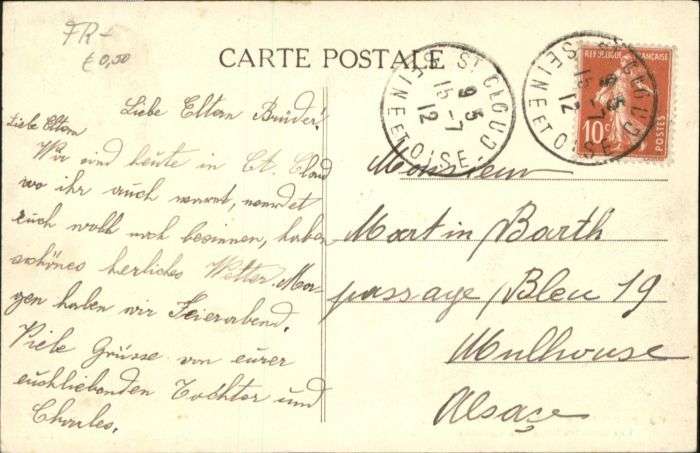 FR-
£ 0,50
CARTE POSTALE
Liebe Eltern Brüder!
Liebe Eltern
Wir sind heute in Ct. Cloud
wo ihr auch wart, werdet
euch wohl noch besinnen, haben
schönes herliches Wetter. Mor-
gen haben wir Feierabend.
Viele Grüsse von eurer
euchliebenden Tochter und
Charles.
ST CLOUD
9 35
15 -7
12
SEINE ET OISE
ST CLOUD
9 35
15 -7
12
SEINE ET OISE
REPUBLIQUE FRANÇAISE
10c
POSTES
Monsieur
Martin Barth
passage Bleu 19
Mulhouse
Alsaçe